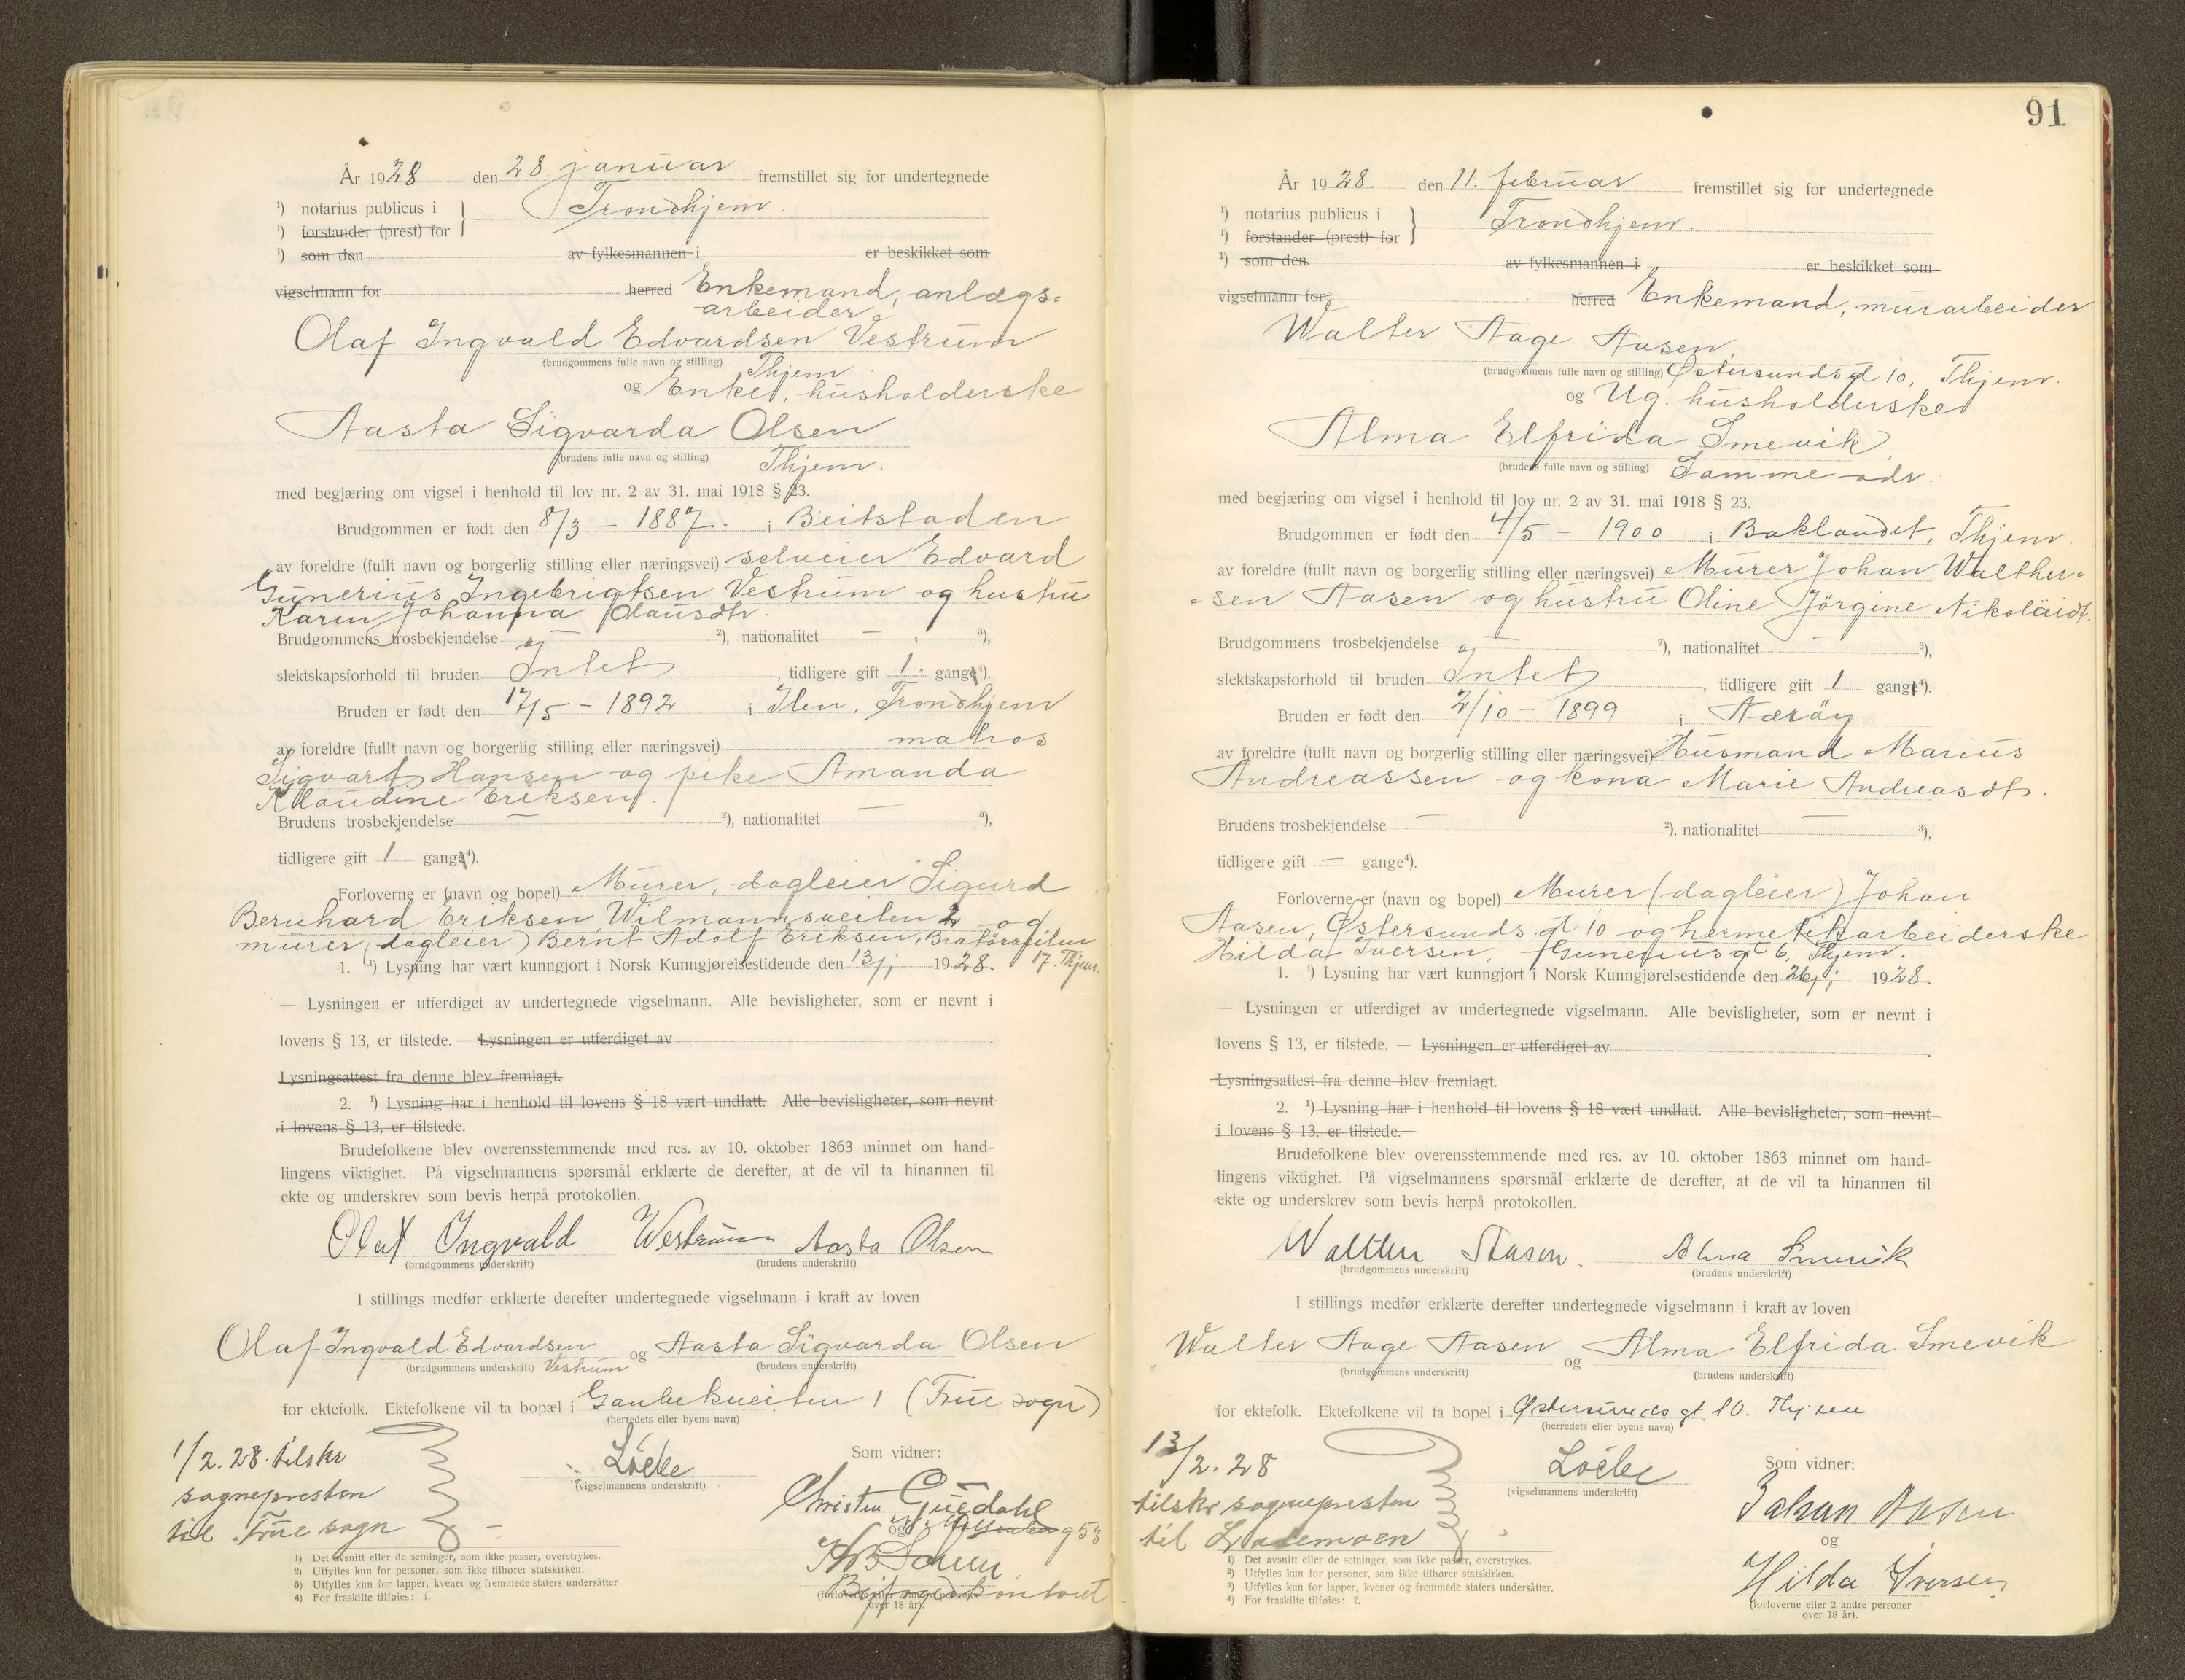 År 1928 den 28. januar fremstillet sig for undertegnede
¹) notarius publicus i Trondhjem.
¹) forstander (prest) for
¹) som den av fylkesmannen i er beskikket som
vigselmann for herred Enkemand, anlægs-
arbeider
Olaf Ingvald Edvardsen Vestrum
(brudgommens fulle navn og stilling) Thjem
og Enke, husholderske
Aasta Sigvarda Olsen
(brudens fulle navn og stilling) Thjem.
med begjæring om vigsel i henhold til lov nr. 2 av 31. mai 1918 § 23.
Brudgommen er født den 8/3 - 1887. i Beitstaden
av foreldre (fullt navn og borgerlig stilling eller næringsvei) selveier Edvard
Gunerius Ingebrigtsen Vestrum og hustru
Karen Johanna Olausdtr.
Brudgommens trosbekjendelse — ²), nationalitet — , ³),
slektskapsforhold til bruden Intet , tidligere gift 1. gange⁴).
Bruden er født den 17/5 - 1892 i Ilen, Trondhjem
av foreldre (fullt navn og borgerlig stilling eller næringsvei) matros
Sigvart Hansen og pike Amanda
Klaudine Eriksen.
Brudens trosbekjendelse — ²), nationalitet — ³),
tidligere gift 1 gange⁴).
Forloverne er (navn og bopel) Murer, dagleier Sigurd
Bernhard Eriksen Wilmannsveiten 2 og
murer (dagleier) Bernt Adolf Eriksen,
17. Thjem.
1. ¹) Lysning har vært kunngjort i Norsk Kunngjørelsestidende den 13/1 1928.
— Lysningen er utferdiget av undertegnede vigselmann. Alle bevisligheter, som er nevnt i
lovens § 13, er tilstede. — Lysningen er utferdiget av .
Lysningsattest fra denne blev fremlagt.
2. ¹) Lysning har i henhold til lovens § 18 vært undlatt. Alle bevisligheter, som nevnt
i lovens § 13, er tilstede.
Brudefolkene blev overensstemmende med res. av 10. oktober 1863 minnet om hand-
lingens viktighet. På vigselmannens spørsmål erklærte de derefter, at de vil ta hinannen til
ekte og underskrev som bevis herpå protokollen.
Olaf Ingvald Westrum Aasta Olsen
(brudgommens underskrift) (brudens underskrift)
I stillings medfør erklærte derefter undertegnede vigselmann i kraft av loven
Olaf Ingvald Edvardsen og Aasta Sigvarda Olsen
(brudgommens underskrift) Vestrum (brudens underskrift)
for ektefolk. Ektefolkene vil ta bopæl i Gaubekveiten 1 (Frue sogn)
(herredets eller byens navn)
1/2. 28. tilskr
sognepresten
til Frue sogn
(vigselmannens underskrift)
Som vidner:
Christen
og
(forloverne eller 2 andre personer
over 18 år).
¹) Det avsnitt eller de setninger, som ikke passer, overstrykes.
²) Utfylles kun for personer, som ikke tilhører statskirken.
³) Utfylles kun for lapper, kvener og fremmede staters undersåtter
⁴) For fraskilte tilføies: f.
91
År 1928. den 11. februar fremstillet sig for undertegnede
¹) notarius publicus i Trondhjem.
¹) forstander (prest) for
¹) som den av fylkesmannen i er beskikket som
vigselmann for herred Enkemand, murarbeider
Walter Aage Aasen,
(brudgommens fulle navn og stilling) Østersundsgt 10, Thjem.
og Ug. husholderske
Alma Elfrida Smevik
(brudens fulle navn og stilling) Samme adr.
med begjæring om vigsel i henhold til lov nr. 2 av 31. mai 1918 § 23.
Brudgommen er født den 4/5 - 1900 i Baklandet, Thjem.
av foreldre (fullt navn og borgerlig stilling eller næringsvei) Murer Johan Walther-
-sen Aasen og hustru Oline Jörgine Nikolaidt.
Brudgommens trosbekjendelse — ²), nationalitet — ³),
slektskapsforhold til bruden Intet , tidligere gift 1 gange⁴).
Bruden er født den 2/10 - 1899 i Nærøy
av foreldre (fullt navn og borgerlig stilling eller næringsvei) Husmand Marius
Andreassen og kona Marie Andreasdt.
Brudens trosbekjendelse — ²), nationalitet — ³),
tidligere gift — gange⁴).
Forloverne er (navn og bopel) Murer (dagleier) Johan
Aasen, Østersundsgt 10 og hermetikarbeiderske
Hilda Iversen, Guneriusgt 6, Thjem.
1. ¹) Lysning har vært kunngjort i Norsk Kunngjørelsestidende den 26/1 1928.
— Lysningen er utferdiget av undertegnede vigselmann. Alle bevisligheter, som er nevnt i
lovens § 13, er tilstede. — Lysningen er utferdiget av .
Lysningsattest fra denne blev fremlagt.
2. ¹) Lysning har i henhold til lovens § 18 vært undlatt. Alle bevisligheter, som nevnt
i lovens § 13, er tilstede.
Brudefolkene blev overensstemmende med res. av 10. oktober 1863 minnet om hand-
lingens viktighet. På vigselmannens spørsmål erklærte de derefter, at de vil ta hinannen til
ekte og underskrev som bevis herpå protokollen.
Walther Aasen. Alma Smevik
(brudgommens underskrift) (brudens underskrift)
I stillings medfør erklærte derefter undertegnede vigselmann i kraft av loven
Walter Aage Aasen og Alma Elfrida Smevik
(brudgommens underskrift) (brudens underskrift)
for ektefolk. Ektefolkene vil ta bopel i Østersundsgt. 10. Thjem
(herredets eller byens navn)
13/2. 28
tilskr sognepresten
til Lademoen
(vigselmannens underskrift)
Som vidner:
Johan Aasen
og
Hilda Iversen
(forloverne eller 2 andre personer
over 18 år).
¹) Det avsnitt eller de setninger, som ikke passer, overstrykes.
²) Utfylles kun for personer, som ikke tilhører statskirken.
³) Utfylles kun for lapper, kvener og fremmede staters undersåtter.
⁴) For fraskilte tilføies: f.